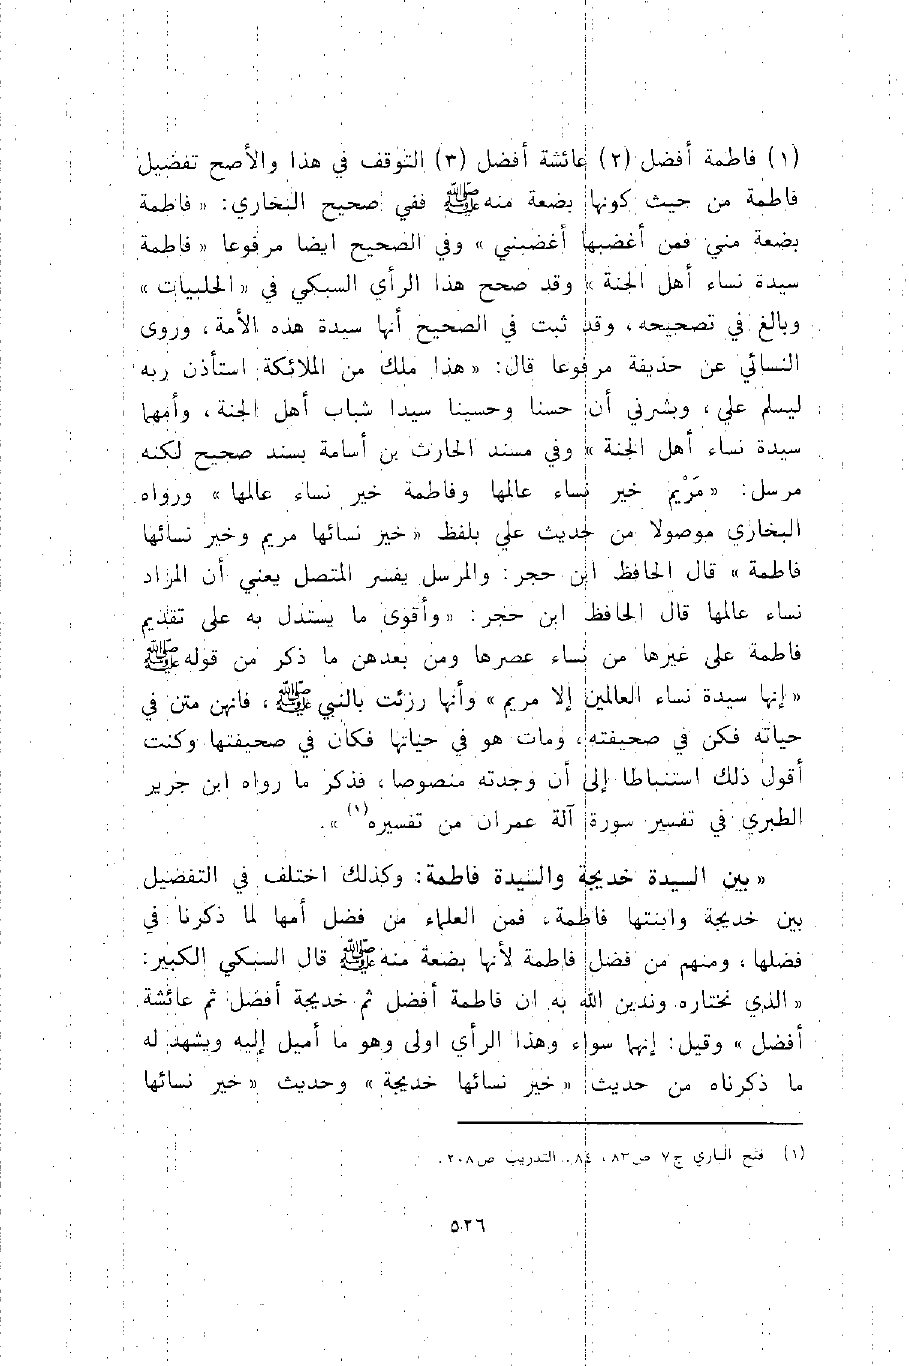 (١) فاطمة أفضل (٢) عائشة أفضل (٣) التوقف في هذا والأصح تفضيل
فاطمة من حيث كونها بضعة منه ﷺ ففي صحيح البخاري: « فاطمة
بضعة مني فمن أغضبها أغضبني » وفي الصحيح ايضا مرفوعا « فاطمة
سيدة نساء أهل الجنة » وقد صحح هذا الرأي السبكي في « الحلبيات »
وبالغ في تصحيحه، وقد ثبت في الصحيح أنها سيدة هذه الأمة، وروى
النسائي عن حذيفة مرفوعا قال: « هذا ملك من الملائكة استأذن ربه
ليسلم علي، وبشرني أن حسنا وحسينا سيدا شباب أهل الجنة، وأمهما
سيدة نساء أهل الجنة » وفي مسند الحارث بن أسامة بسند صحيح لكنه
مرسل: « مَرْيم خير نساء عالمها وفاطمة خير نساء عالمها » ورواه
البخاري موصولا من حديث علي بلفظ « خير نسائها مريم وخير نسائها
فاطمة » قال الحافظ ابن حجر: والمرسل يفسر المتصل يعني أن المراد
نساء عالمها قال الحافظ ابن حجر: « وأقوى ما يستدل به على تقديم
فاطمة على غيرها من نساء عصرها ومن بعدهن ما ذكر من قوله ﷺ
« إنها سيدة نساء العالمين إلا مريم » وأنها رزئت بالنبي ﷺ، فانهن متن في
حياته فكن في صحيفته، ومات هو في حياتها فكان في صحيفتها وكنت
أقول ذلك استنباطا إلى أن وجدته منصوصا، فذكر ما رواه ابن جرير
الطبري في تفسير سورة آلة عمران من تفسيره(١) ».
« بين السيدة خديجة والسيدة فاطمة: وكذلك اختلف في التفضيل
بين خديجة وابنتها فاطمة، فمن العلماء من فضل أمها لما ذكرنا في
فضلها، ومنهم من فضل فاطمة لأنها بضعة منه ﷺ قال السبكي الكبير:
« الذي نختاره وندين الله به ان فاطمة أفضل ثم خديجة أفضل ثم عائشة
أفضل » وقيل: إنهما سواء وهذا الرأي اولى وهو ما أميل إليه ويشهد له
ما ذكرناه من حديث « خير نسائها خديجة » وحديث « خير نسائها
(١) فتح الباري ج٧ ص٨٣، ٨٤. التدريب ص٢٠٨.
٥٢٦